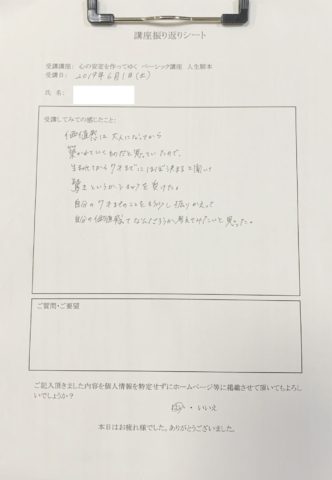 講座振り返りシート
受講講座: 心の安定を作ってゆく ベーシック講座 人生脚本
受講日: 2019年6月1日(土)
氏 名:
受講してみての感じたこと:
価値感は大人になってから
築かれていくものだと思っていたので、
生まれてから7才までにほぼ決まると聞いて
驚きというかショックを受けた。
自分の7才までのことをもう少し振りかえって
自分の価値感てなんだろうか、考えてみたいと思った。
ご質問・ご要望
ご記入頂きました内容を個人情報を特定せずにホームページ等に掲載させて頂いてもよろし
いでしょうか?
はい ・ いいえ
本日はお疲れ様でした。ありがとうございました。